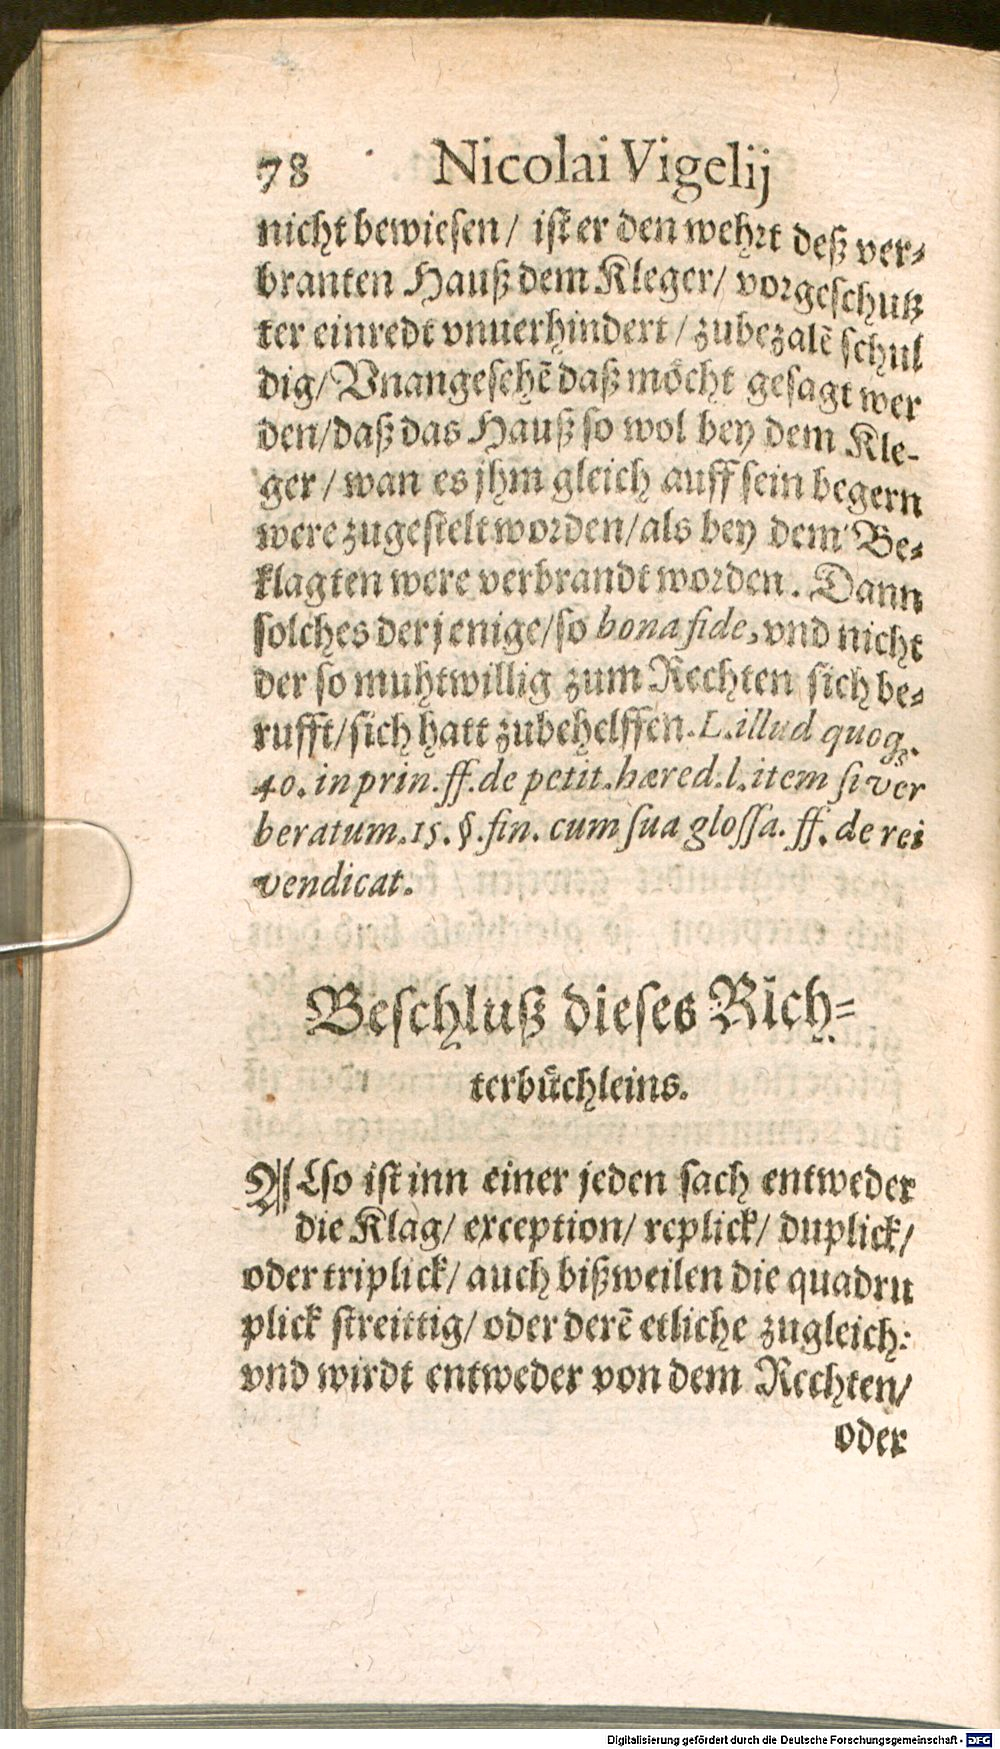 78 Nicolai Vigelij
nicht bewiesen/ ist er den wehrt deß ver-
branten Hauß dem Kleger/ vorgeschutz
ter einredt vnuerhindert/ zubezalẽ schul
dig/ Vnangesehẽ daß möcht gesagt wer
den/ daß das Hauß so wol bey dem Kle-
ger/ wan es jhm gleich auff sein begern
were zugestelt worden/ als bey dem Be-
klagten were verbrandt worden. Dann
solches derjenige/ so bona fide, vnd nicht
der so muhtwillig zum Rechten sich be-
rufft/ sich hatt zubehelffen. L. illud quoq.
40. in prin. ff. de petit. hæred. l. item si ver
beratum. 15. §. fin. cum sua glossa. ff. de rei
vendicat.
Beschluß dieses Rich-
terbüchleins.
ALso ist inn einer jeden sach entweder
die Klag/ exception/ replick/ duplick/
oder triplick/ auch bißweilen die quadru
plick streittig/ oder derẽ etliche zugleich:
vnd wirdt entweder von dem Rechten/
oder
Digitalisierung gefördert durch die Deutsche Forschungsgemeinschaft - DFG